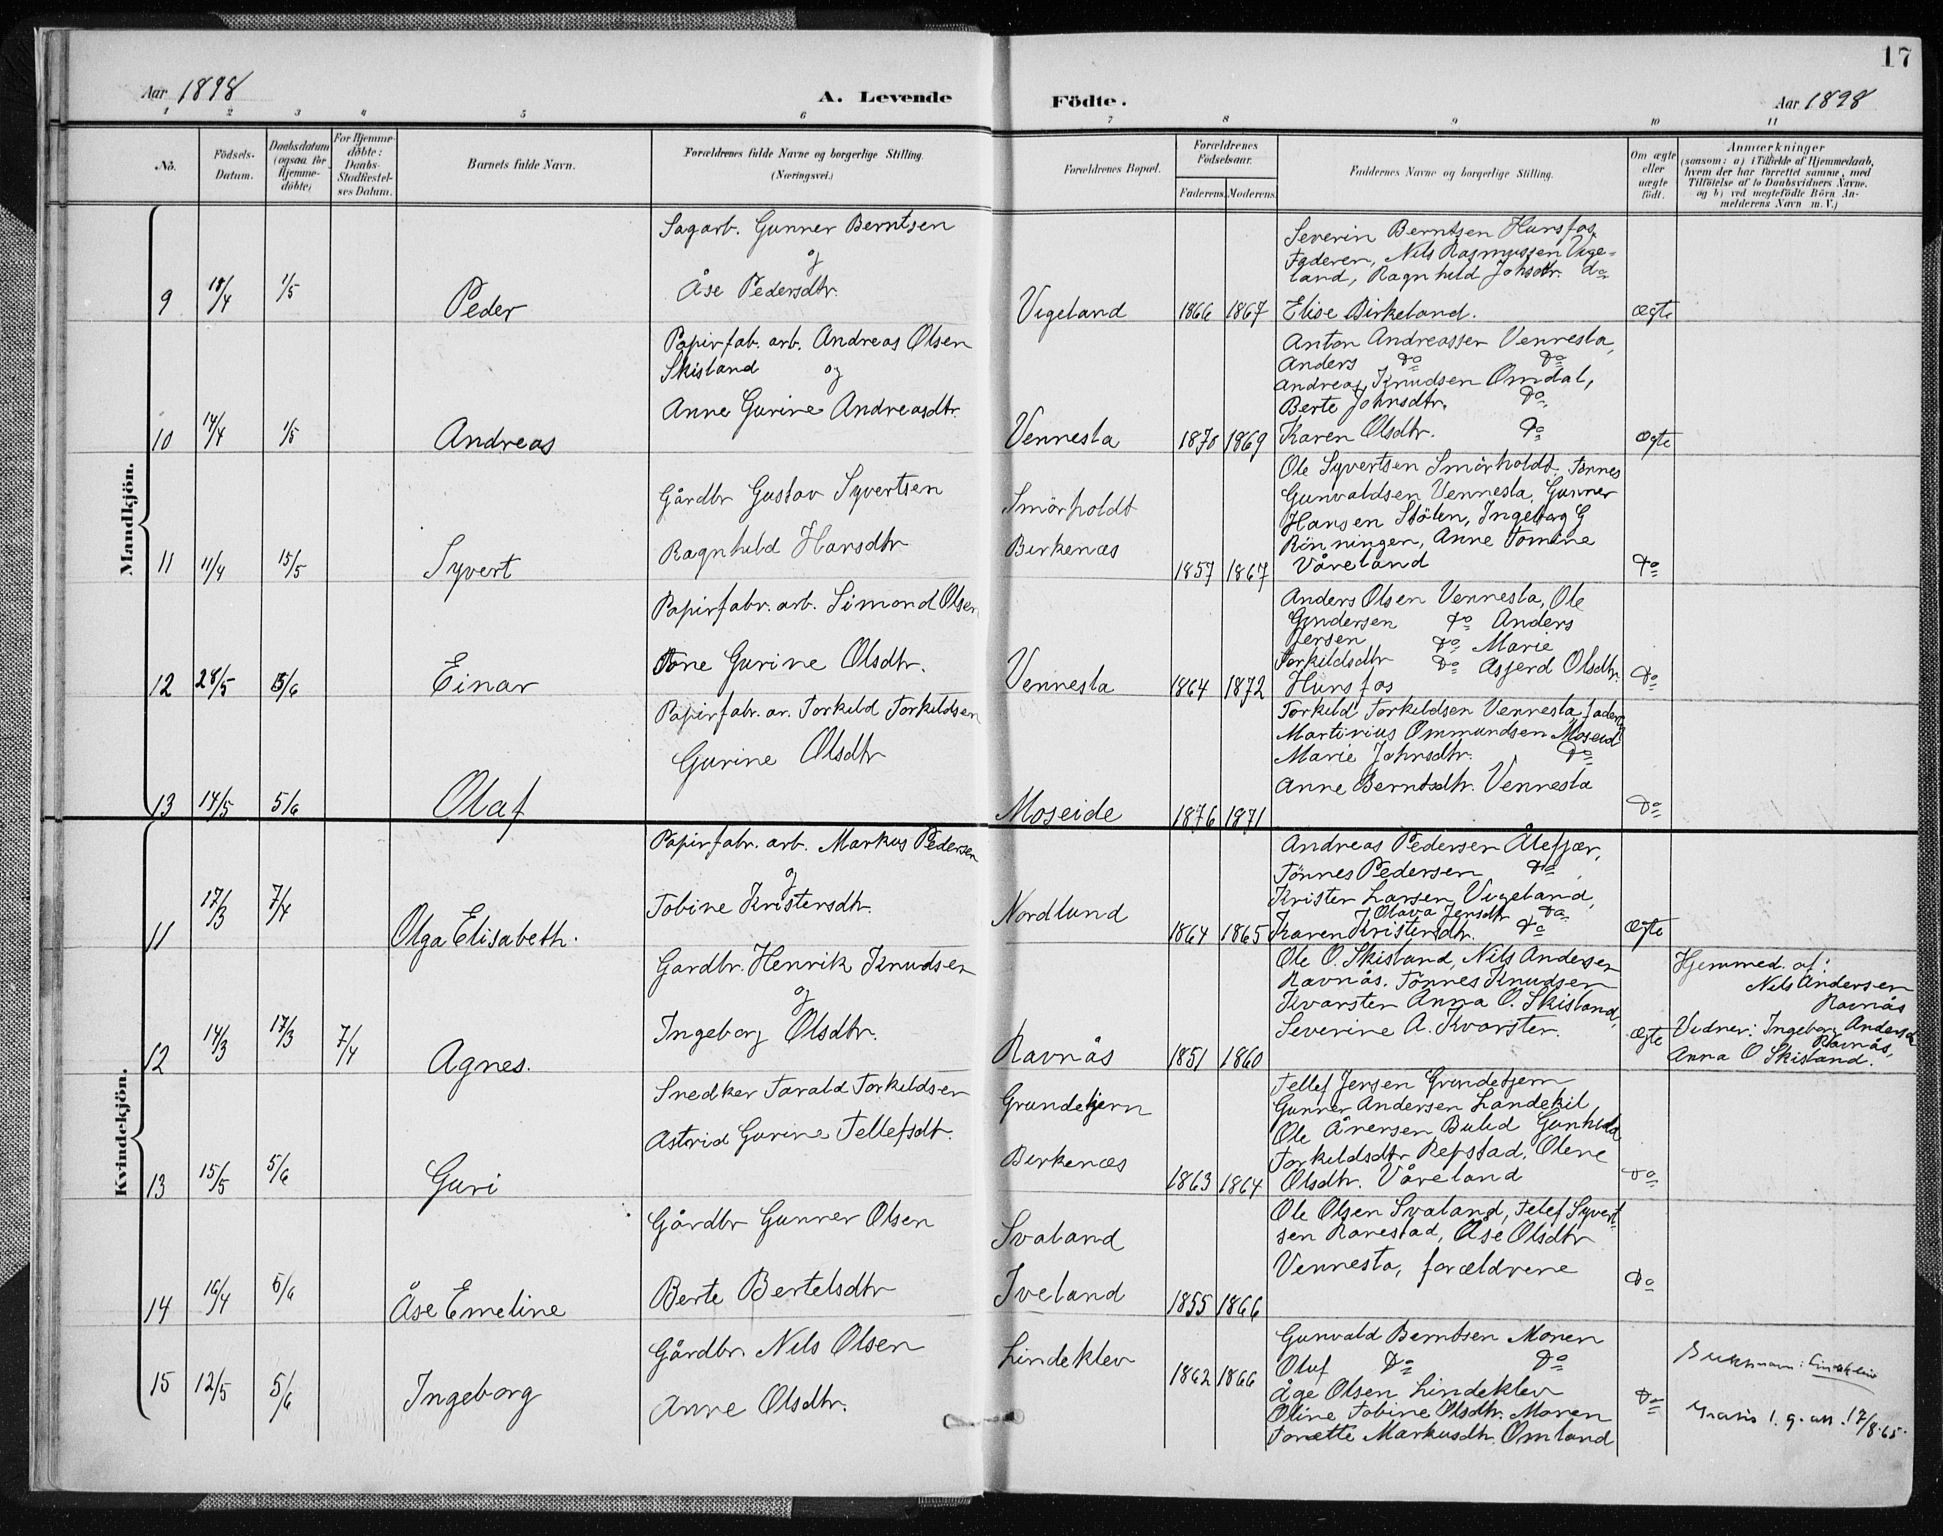 17
Aar 1898
A. Levende
Födte.
Aar 1898
1 2 3 4 5 6 7 8 9 10 11
No.
Födsels-
Datum.
Daabsdatum
(ogsaa for
Hjemme-
döbte)
For Hjemme-
döbte:
Daabs-
Stadfæstel-
ses Datum.
Barnets fulde Navn.
Forældrenes fulde Navne og borgerlige Stilling.
(Næringsvei.)
Forældrenes Bopæl.
Forældrenes
Födselsaar.
Faderens. Moderens.
Faddernes Navne og borgerlige Stilling.
Om ægte
eller
uægte
födt.
Anmærkninger
(saasom: a) i Tilfælde af Hjemmedaab,
hvem der har forrettet samme, med
Tilföielse af to Daabsvidners Navne.
og b) ved uægtefödte Börn An-
melderens Navn m. V.)
Mandkjön.
9 18/4 1/5 Peder
Sagarb. Gunner Berntsen
og
Åse Pedersdtr.
Vigeland 1866 1867
Severin Berntsen Hunsfos
Faderen, Nils Rasmussen Vige-
land, Ragnhild Johsdtr. do
Elise Birkeland.
Ægte
10 14/4 1/5 Andreas
Papirfab. arb. Andreas Olsen
Skisland og
Anne Gurine Andreasdtr.
Vennesla 1870 1869
Anton Andreassen Vennesla,
Anders Do Do
Andreas Knudsen Omdal,
Berte Johnsdtr. Do
Karen Olsdtr. Do
Ægte
11 11/4 15/5 Syvert
Gårdbr Gustav Syvertsen
Ragnhild Hansdtr
Smörholdt
Birkenæs
1857 1867
Ole Syvertsen Smörholdt, Tönnes
Gunvaldsen Vennesla, Gunner
Hansen Stölen, Ingeborg G
Rönningen, Anne Tomine
Våreland
Do
12 28/5 5/6 Einar
Papirfabr. arb. Simond Olsen
Tone Gurine Olsdtr.
Vennesla 1864 1872
Anders Olsen Vennesla, Ole
Gundersen Do Anders
Jersen Do Marie
Torkildsdtr Do Asjerd Olsdtr.
Hunsfos
Do
13 14/5 5/6 Olaf
Papirfabr. ar. Torkild Torkildsen
Gurine Olsdtr
Moseide 1876 1871
Torkild Torkildsen Vennesla, fadern
Martinius Ommundsen Moseid
Marie Johnsdtr. Do
Anne Berntsdtr. Vennesla
Do
Kvindekjön.
11 17/3 7/4 Olga Elisabeth.
Papirfabr. arb. Markus Pedersen
og
Tobine Kristersdtr.
Nordlund 1864 1865
Andreas Pedersen Ålefjær,
Tönnes Pedersen Do
Krister Larsen Vigeland,
Olava Jensdtr Do
Karen Kristersdtr. Do
Ægte
12 14/3 17/3 7/4 Agnes.
Gardbr. Henrik Knudsen
og
Ingeborg Olsdtr.
Ravnås 1851 1860
Ole O. Skisland, Nils Andersen
Ravnås. Tönnes Knudsen
Kvarsten Anna O. Skisland,
Severine A. Kvarsten.
Ægte
Hjemmed. af:
Nils Andersen
Ravnås
Vidner: Ingeborg Andersdtr
Ravnås,
Anna O Skisland.
13 15/5 5/6 Guri
Snedker Tarald Torkildsen
Astrid Gurine Tellefsdtr.
Grundetjern
Birkenæs
1863 1864
Tellef Jensen Grundetjern
Gunner Andersen Landekil
Ole Ånersen Bulid Gunhilda
Torkildsdtr Refstad, Olene
Olsdtr. Våreland
Do
14 16/4 5/6 Åse Emeline
Gårdbr Gunner Olsen
Berte Bertelsdtr
Svaland
Iveland
1855 1866
Ole Olsen Svaland, Tellef Syvert-
sen Ranestad, Åse Olsdtr
Vennesla, forældrene
Do
15 12/5 5/6 Ingeborg
Gårdbr. Nils Olsen
Anne Olsdtr.
Lindeklev 1862 1866
Gunvald Berntsen Monen
Oluf Do Do
Åge Olsen Lindeklev
Oline Tobine Olsdtr. Monen
Torætte Markusdtr. Omland
Do
17/8.65.